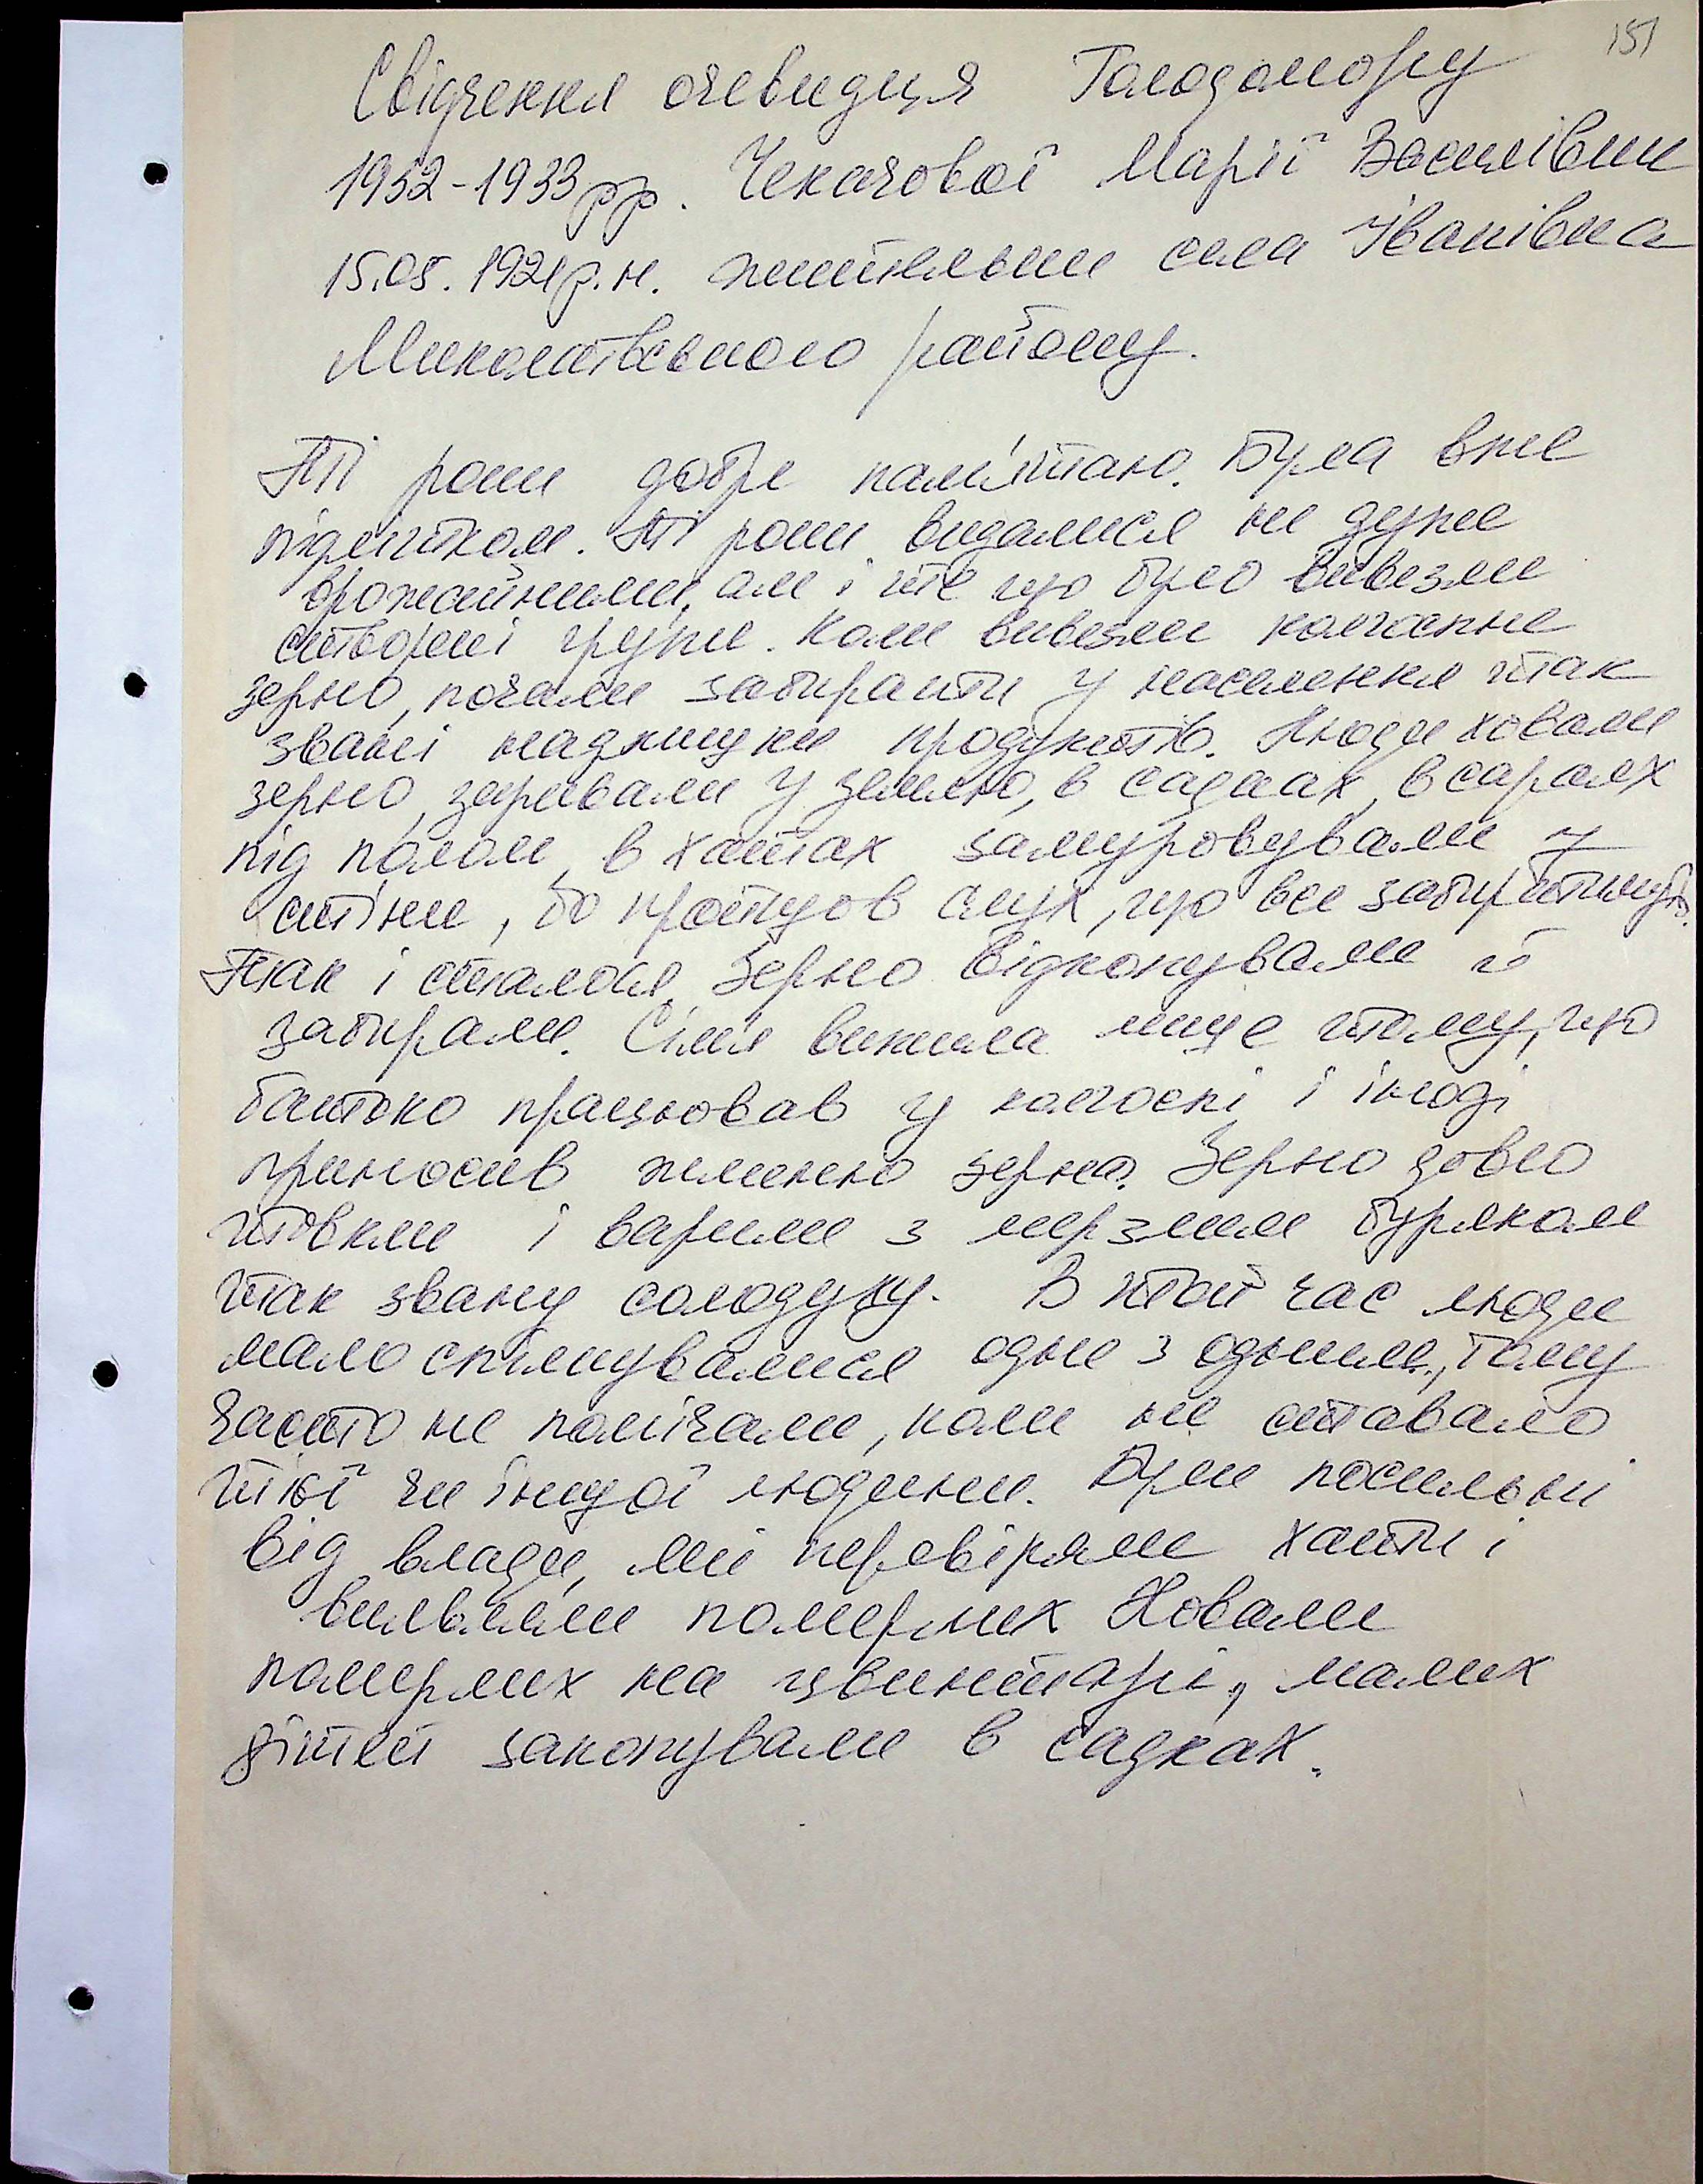 151
Свідчення очевидця Голодомору
1932-1933 рр. Чекачової Марії Василівни
15.05. 1921 р.н. жительки села Іванівка
Миколаївського району.
Ті роки добре пам'ятаю. Була вже
підлітком. Ті роки видалися не дуже
врожайними, але і те що було вивезли
створені групи. Коли вивезли колгоспне
зерно, почали забирати у населення так
звані надлишки продуктів. Люди ховали
зерно, заривали у землю, в садках, в сараях
під полом, в хатах замуровували у
стіни, бо пройшов слух, що все забиратимуть.
Так і сталося. Зерно відкопували й
забирали. Сім'я вижила лише тому, що
батько працював у колгоспі і іноді
приносив жменю зерна. Зерно довго
товкли і варили з мерзлим буряком
так звану солодуху. В той час люди
мало спілкувалися одне з одним, тому
часто не помічали, коли не ставало
тієї чи іншої людини. Були посильні
від влади, які перевіряли хати і
виявляли померлих Ховали
померлих на цвинтарі, малих
дітей закопували в садках.